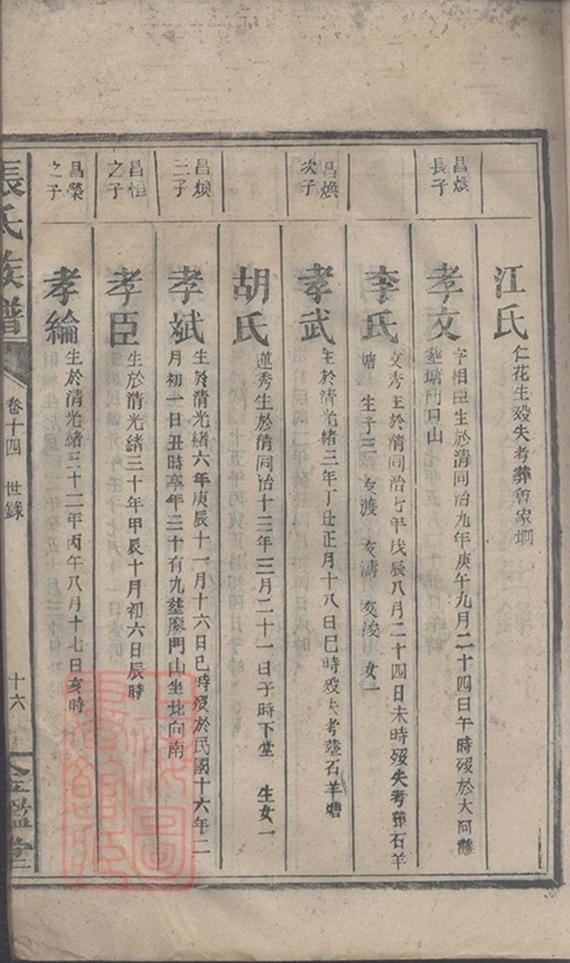 江氏
仁花生殁失考葬曾家垇
昌煥
長子
孝文
字相臣生於清同治九年庚午九月二十四日午時殁於大河灘
葬塘門口山
李氏
文秀生於清同治七年戊辰八月二十四日未時殁失考葬石羊
塘 生子三 友渡 友濤 友浚 女一
昌煥
次子
孝武
生於清光緒三年丁丑正月十八日巳時殁失考葬石羊塘
胡氏
蓮秀生於清同治十三年三月二十一日子時下堂 生女一
昌煥
三子
孝斌
生於清光緒六年庚辰十一月十六日巳時殁於民國十六年二
月初一日丑時享年三十有九葬廖門山坐北向南
昌恒
之子
孝臣
生於清光緒三十年甲辰十月初六日辰時
昌榮
之子
孝綸
生於清光緒三十二年丙午八月十七日亥時
張氏族譜
卷十四 世錄
十六
金鑑堂